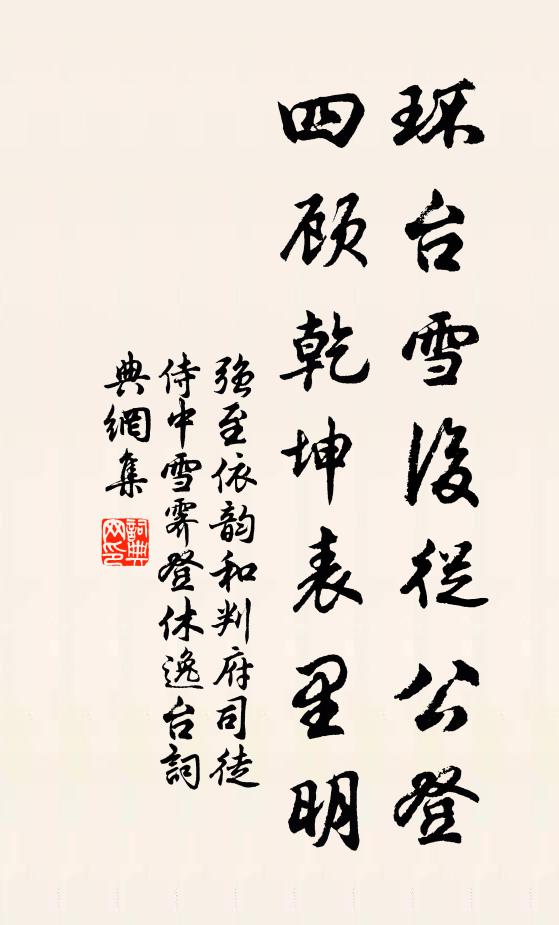 环台雪後從公登
四顾乾坤表里明
強至依韵和判府司徒
侍中雪霁登休逸台詞
典網集
詞典网印